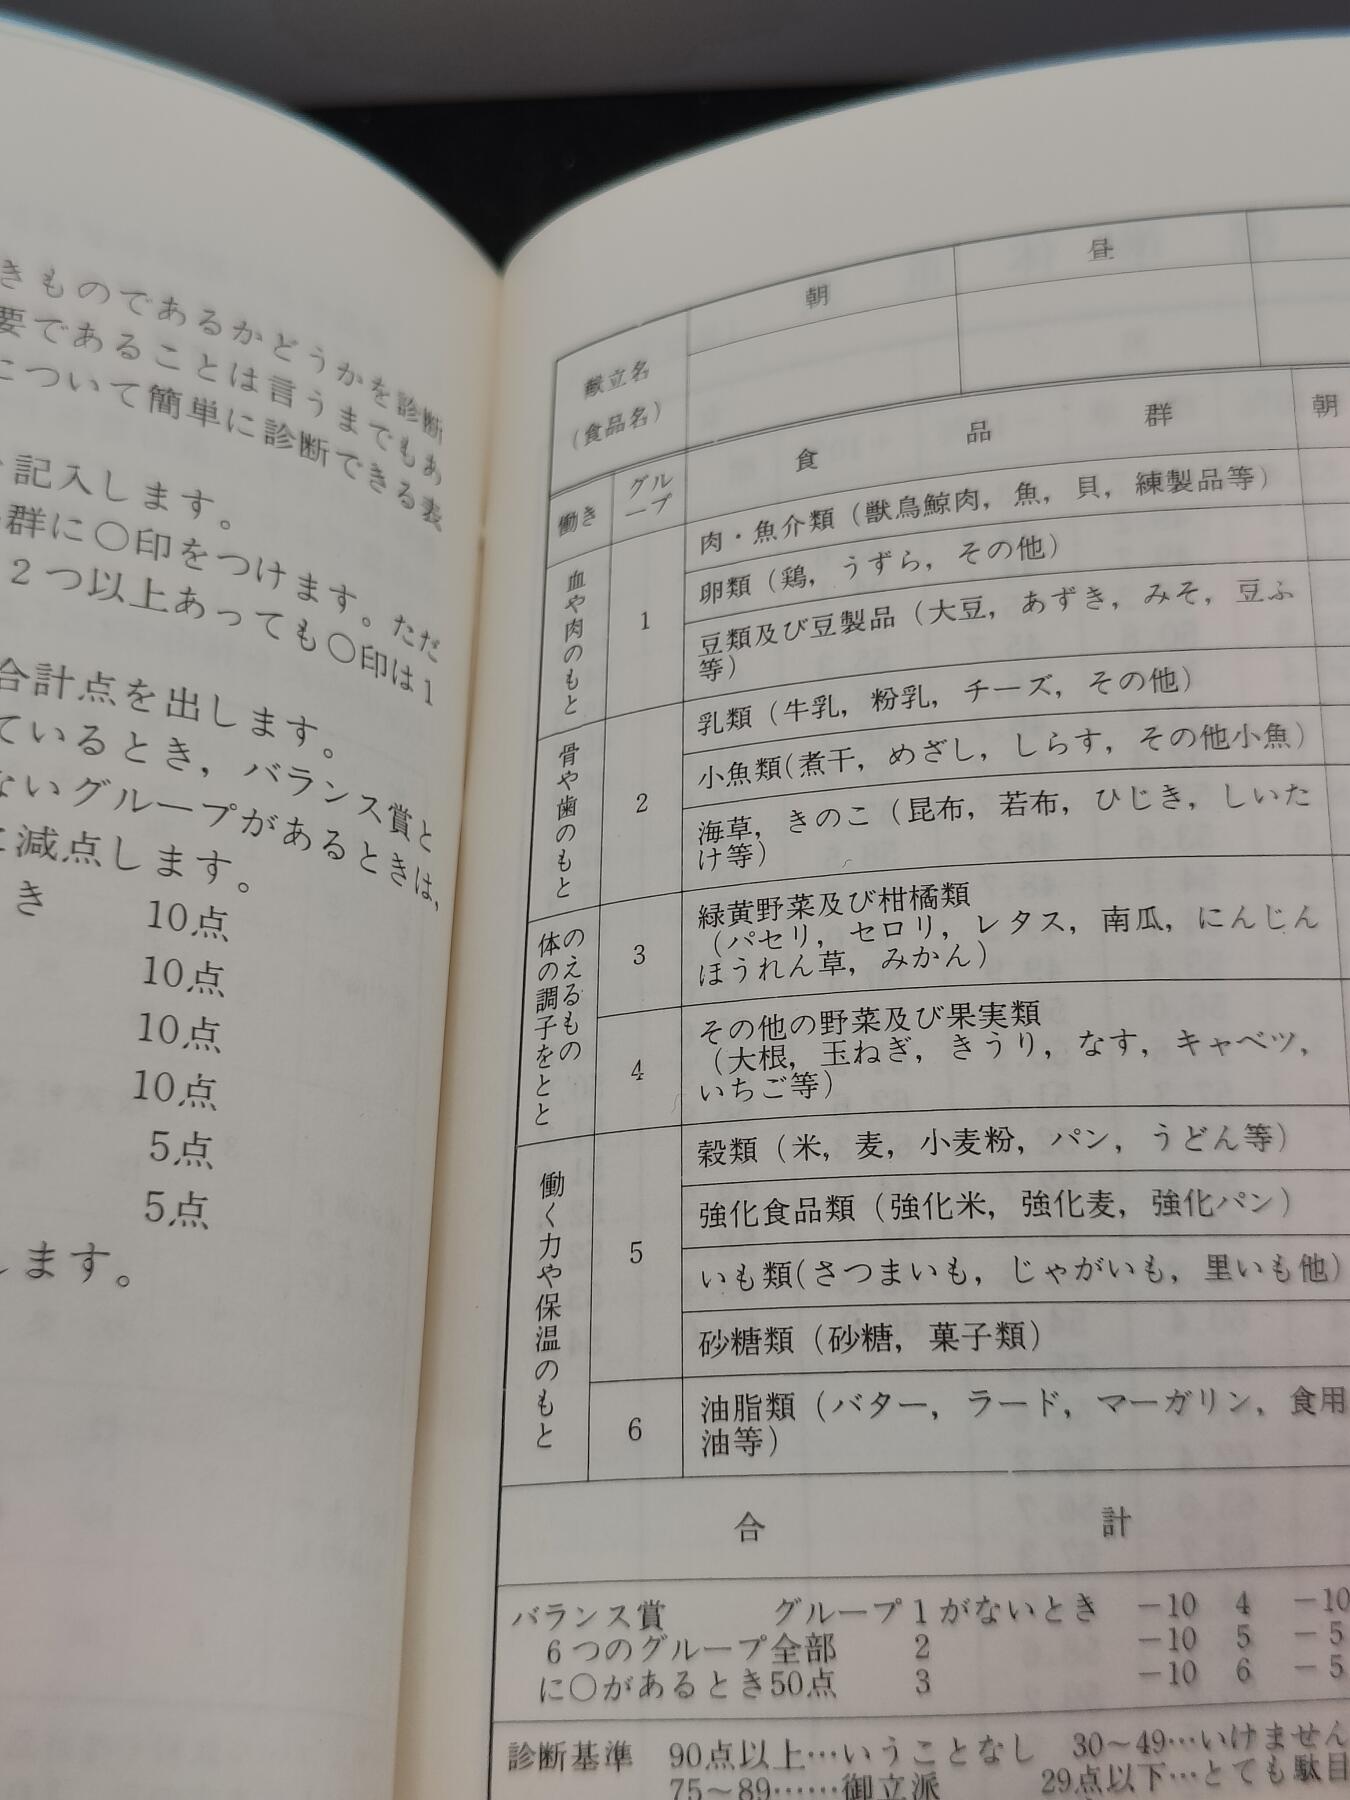 きものであるかどうかを診断
要であることは言うまでもあ
について簡単に診断できる表
記入します。
群に〇印をつけます。ただ
2つ以上あっても〇印は1
合計点を出します。
ているとき，バランス賞と
ないグループがあるときは，
減点します。
き 10点
10点
10点
10点
5点
5点
します。
献立名
(食品名)
朝
昼
働き
グループ
食品群
朝
血や肉のもと
1
肉・魚介類（獣鳥鯨肉，魚，貝，練製品等）
卵類（鶏，うずら，その他）
豆類及び豆製品（大豆，あずき，みそ，豆ふ
等）
骨や歯のもと
2
乳類（牛乳，粉乳，チーズ，その他）
小魚類(煮干，めざし，しらす，その他小魚）
海草，きのこ（昆布，若布，ひじき，しいた
け等）
体の調子をとと
のえるもの
3
緑黄野菜及び柑橘類
（パセリ，セロリ，レタス，南瓜，にんじん
ほうれん草，みかん）
4
その他の野菜及び果実類
（大根，玉ねぎ，きうり，なす，キャベツ，
いちご等）
働く力や保温のもと
5
穀類（米，麦，小麦粉，パン，うどん等）
強化食品類（強化米，強化麦，強化パン）
いも類(さつまいも，じゃがいも，里いも他）
砂糖類（砂糖，菓子類）
6
油脂類（バター，ラード，マーガリン，食用
油等）
合計
バランス賞 グループ1がないとき −10 4 −10
6つのグループ全部 2 −10 5 −5
に〇があるとき50点 3 −10 6 −5
診断基準 90点以上…いうことなし 30～49…いけません
75～89……御立派 29点以下…とても駄目